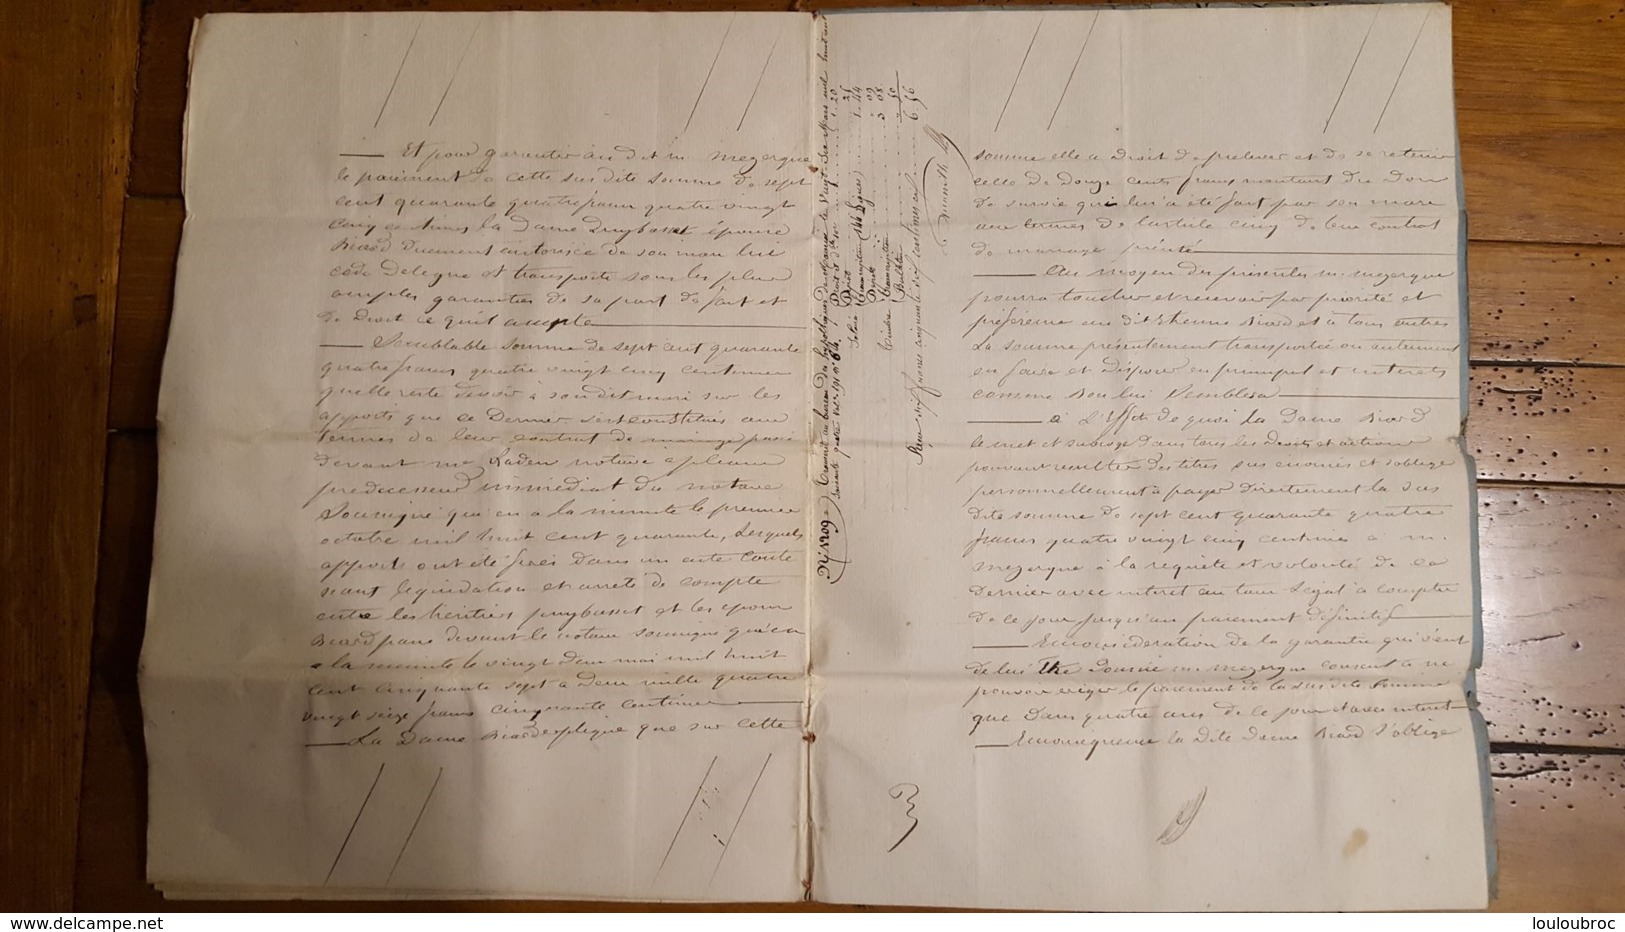 Et pour garantir au dit m. mezergue
le paiement de cette sus dite somme de sept
cent quarante quatre francs quatre vingt
cinq centimes la dame Puybasset épouse
Biard Duement autorisée de son mari lui
cede Delegue et transporte sous les plus
amples garanties de sa part de fait et
de Droit ce qu'il accepte
Semblable somme de sept cent quarante
quatre francs quatre vingt cinq centimes
quelle reste devoir à son dit mari sur les
apports que ce Dernier s'est constitués aux
termes de leur contrat de mariage passé
devant me notaire a
predecesseur immediat du notaire
Soussigné qui en a la minute le premier
octobre mil huit cent quarante, Lesquels
apports ont été fixés Dans un acte conte
nant liquidation et arrêté de compte
entre les héritiers puybasset et les époux
Biard passé devant le notaire soussigné qui en
a la minute le vingt Deux mai mil huit
cent cinquante sept a Deux mille quatre
vingt seize francs cinquante centimes
La Dame Biard explique que sur cette
N° 1209 Transcrit au bureau des hypothèques de le Vingt Six Mars mil huit cent
soixante quatre Vol. 191 n° 64
1.20
Dépôt 25
Salaire Transcription 1.44
09
Timbre 3 08
Bulletin 50
6 56
Reçu Six francs cinquante six centimes
somme elle a Droit de prelever et de se retenir
celle De Douze cents francs montant du Don
de survie qui lui a été fait par son mari
aux termes de l'article cinq de leur contrat
de mariage précité
Au moyen des présentes m. mezergue
pourra toucher et recevoir par priorité et
préférence au dit Etienne Biard et à tous autres
La somme présentement transportée ou autrement
en faire et Disposer en principal et interets
comme Bon lui Semblera
à L'Effet de quoi La Dame Biard
le met et subroge dans tous les droits et actions
pouvant resulter des titres sus énoncés et s'oblige
personnellement à payer directement la sus
dite somme de sept cent quarante quatre
francs quatre vingt cinq centimes à m.
mezergue à la requete et volonté de ce
Dernier avec interet au taux Légal à compter
de ce jour jusqu'au paiement définitif
En consideration de la garantie qui vient
de lui être Donnée m. mezergue consent à ne
pouvoir exiger le paiement de la sus dite somme
que Dans quatre ans de ce jour et avec interet
En conséquence la Dite Dame Biard s'oblige
www.delcampe.net
louloubroc